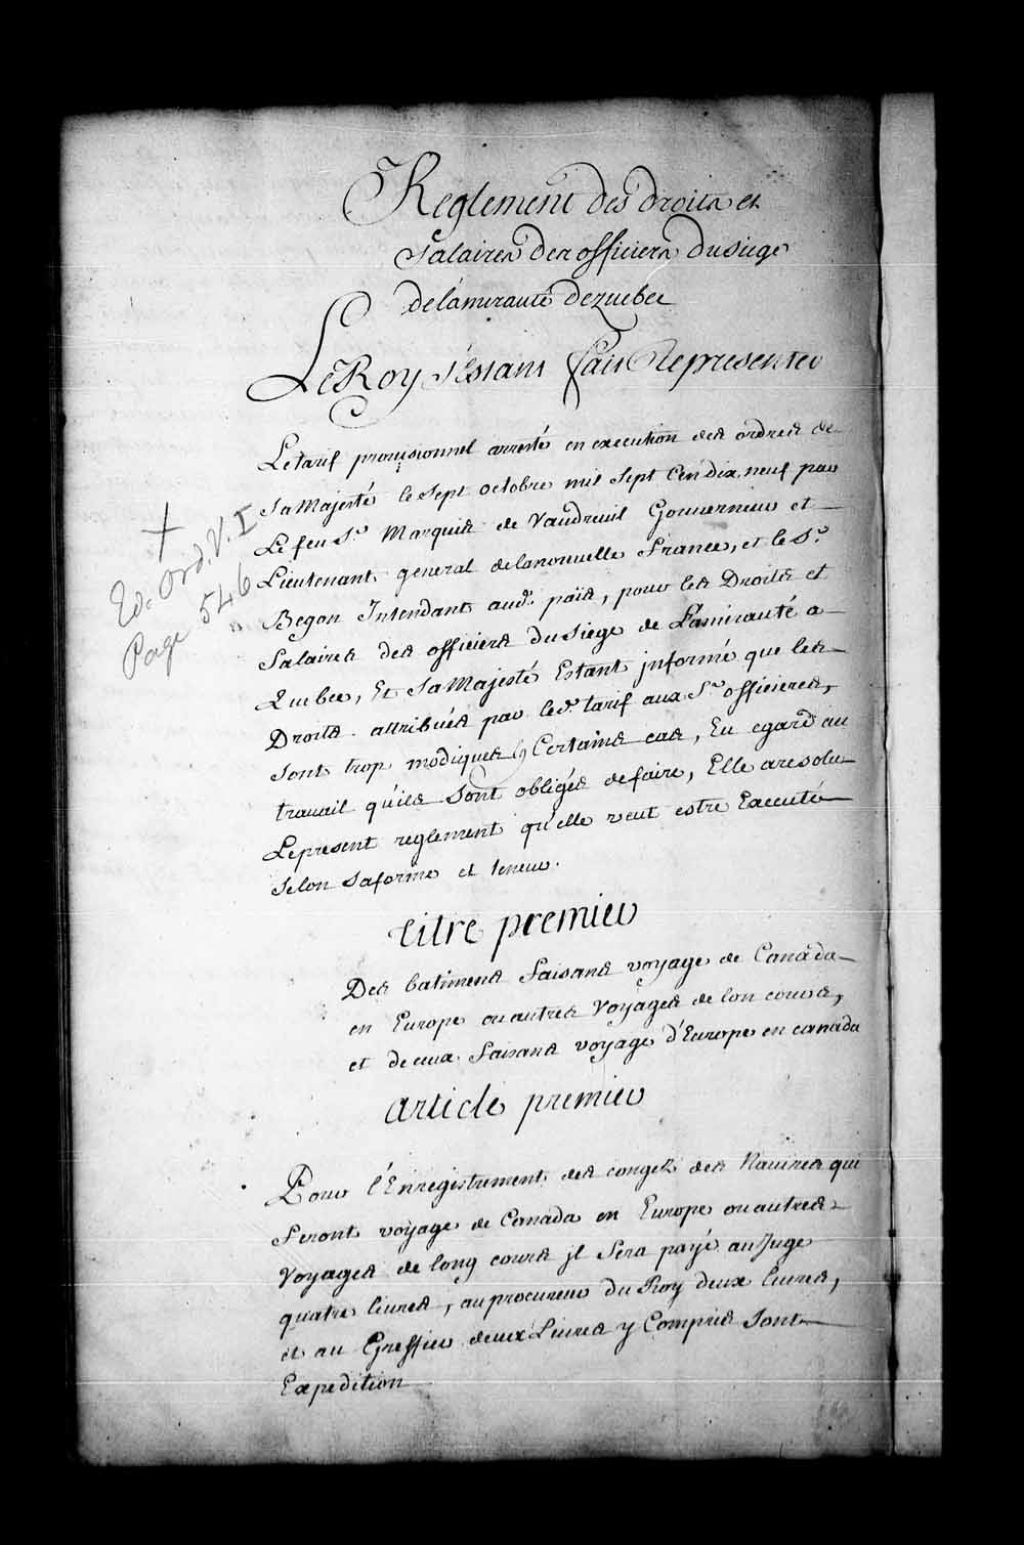 Reglement des droits et
Salaires des officiers du Siege
de lamirauté de quebec
Le Roy s'estant fait Representer
Le tarif provisionnel arresté en execution des ordres de
Sa Majesté le Sept octobre mil Sept Cen dix neuf par
Le feu Sr. Marquis de Vaudreuil Gouverneur et
Lieutenant general de la nouvelle France, et le Sr.
Begon Intendant aud. païs, pour les Droits et
Salaires des officiers du Siege de L'amirauté a
Quebec, Et Sa Majesté Estant jnformé que les
Droits attribués par led. tarif aux Srs. officiers,
Sont trop modiques en Certains cas, Eu egard au
travail qu'ils Sont obligés de faire, Elle a resolu
Le present reglement qu'elle veut estre Executé
Selon sa forme et teneur.
titre premier
Des batimens faisans voyage de Canada
en Europe ou autres Voyages de lon cours,
et de ceux faisans voyage d'Europe en canada
article premier
Pour l'Enregistrement des congez des Navires qui
feront voyage de Canada en Europe ou autres
Voyages de long cours jl Sera payé au Juge
quatre livres, au procureur du Roy deux livres,
et au Greffier deux Livres y Compris Son
Expedition
+
Ed. Ord. V. I
Page 546